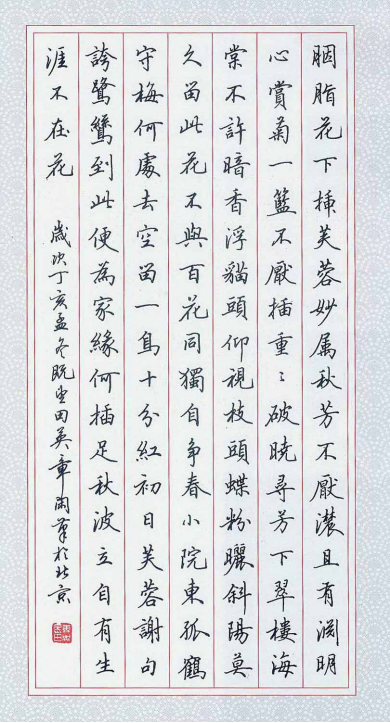 胭脂花下挿芙蓉妙属秋芳不厭濃且有淵明
心賞菊一籃不厭插重〻破曉尋芳下翠樓海
棠不許暗香浮貓頭仰視枝頭蝶粉曬斜陽莫
久留此花不與百花同獨自争春小院東孤鶴
守梅何處去空留一鳥十分紅初日芙蓉謝句
誇鷺鷥到此便為家緣何插足秋波立自有生
涯不在花 歲次丁亥孟冬既望田英章閑筆於北京